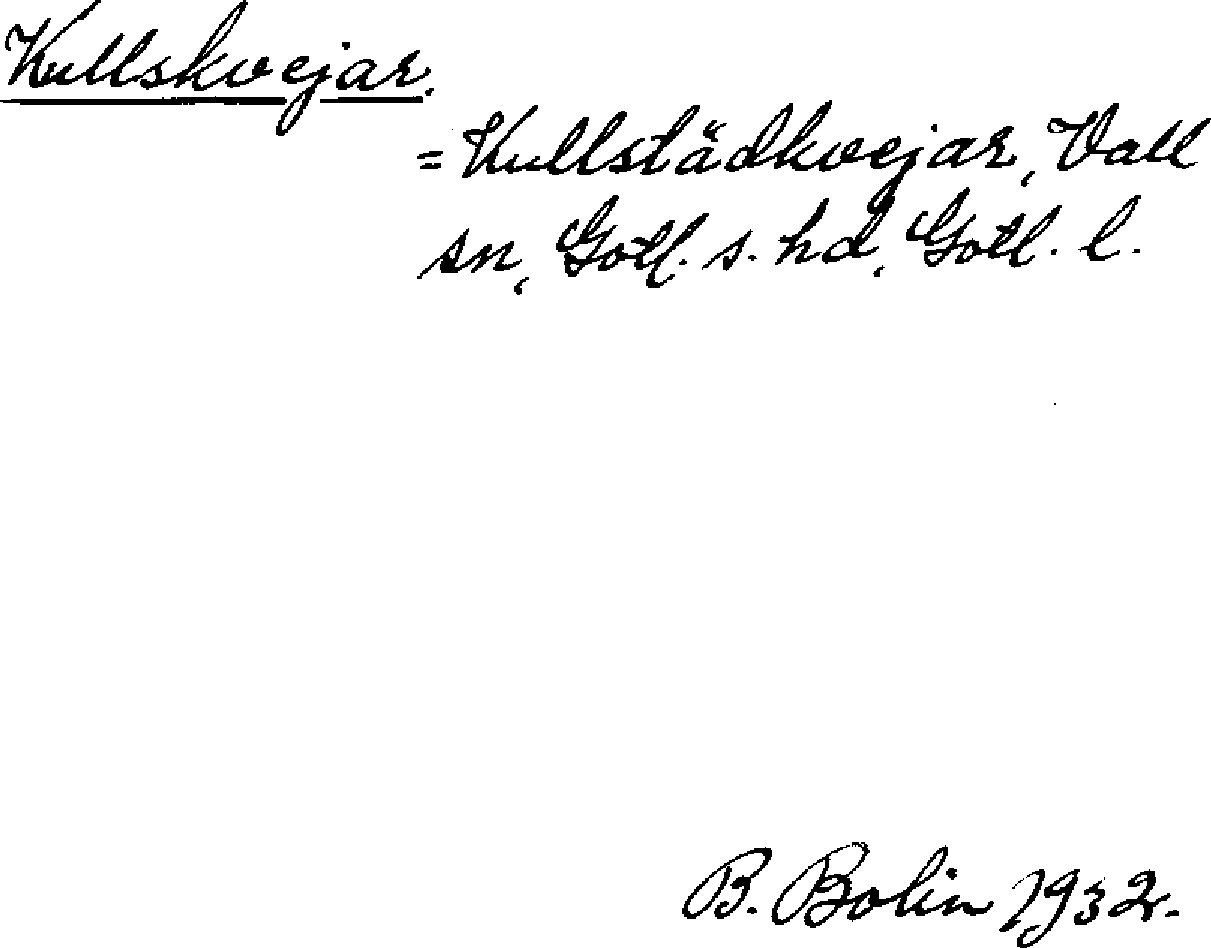 Kullskvejar.
= Kullstädkvejar, Vall
sn, Gotl. s. hd, Gotl. l.
B. Bolin 1932.